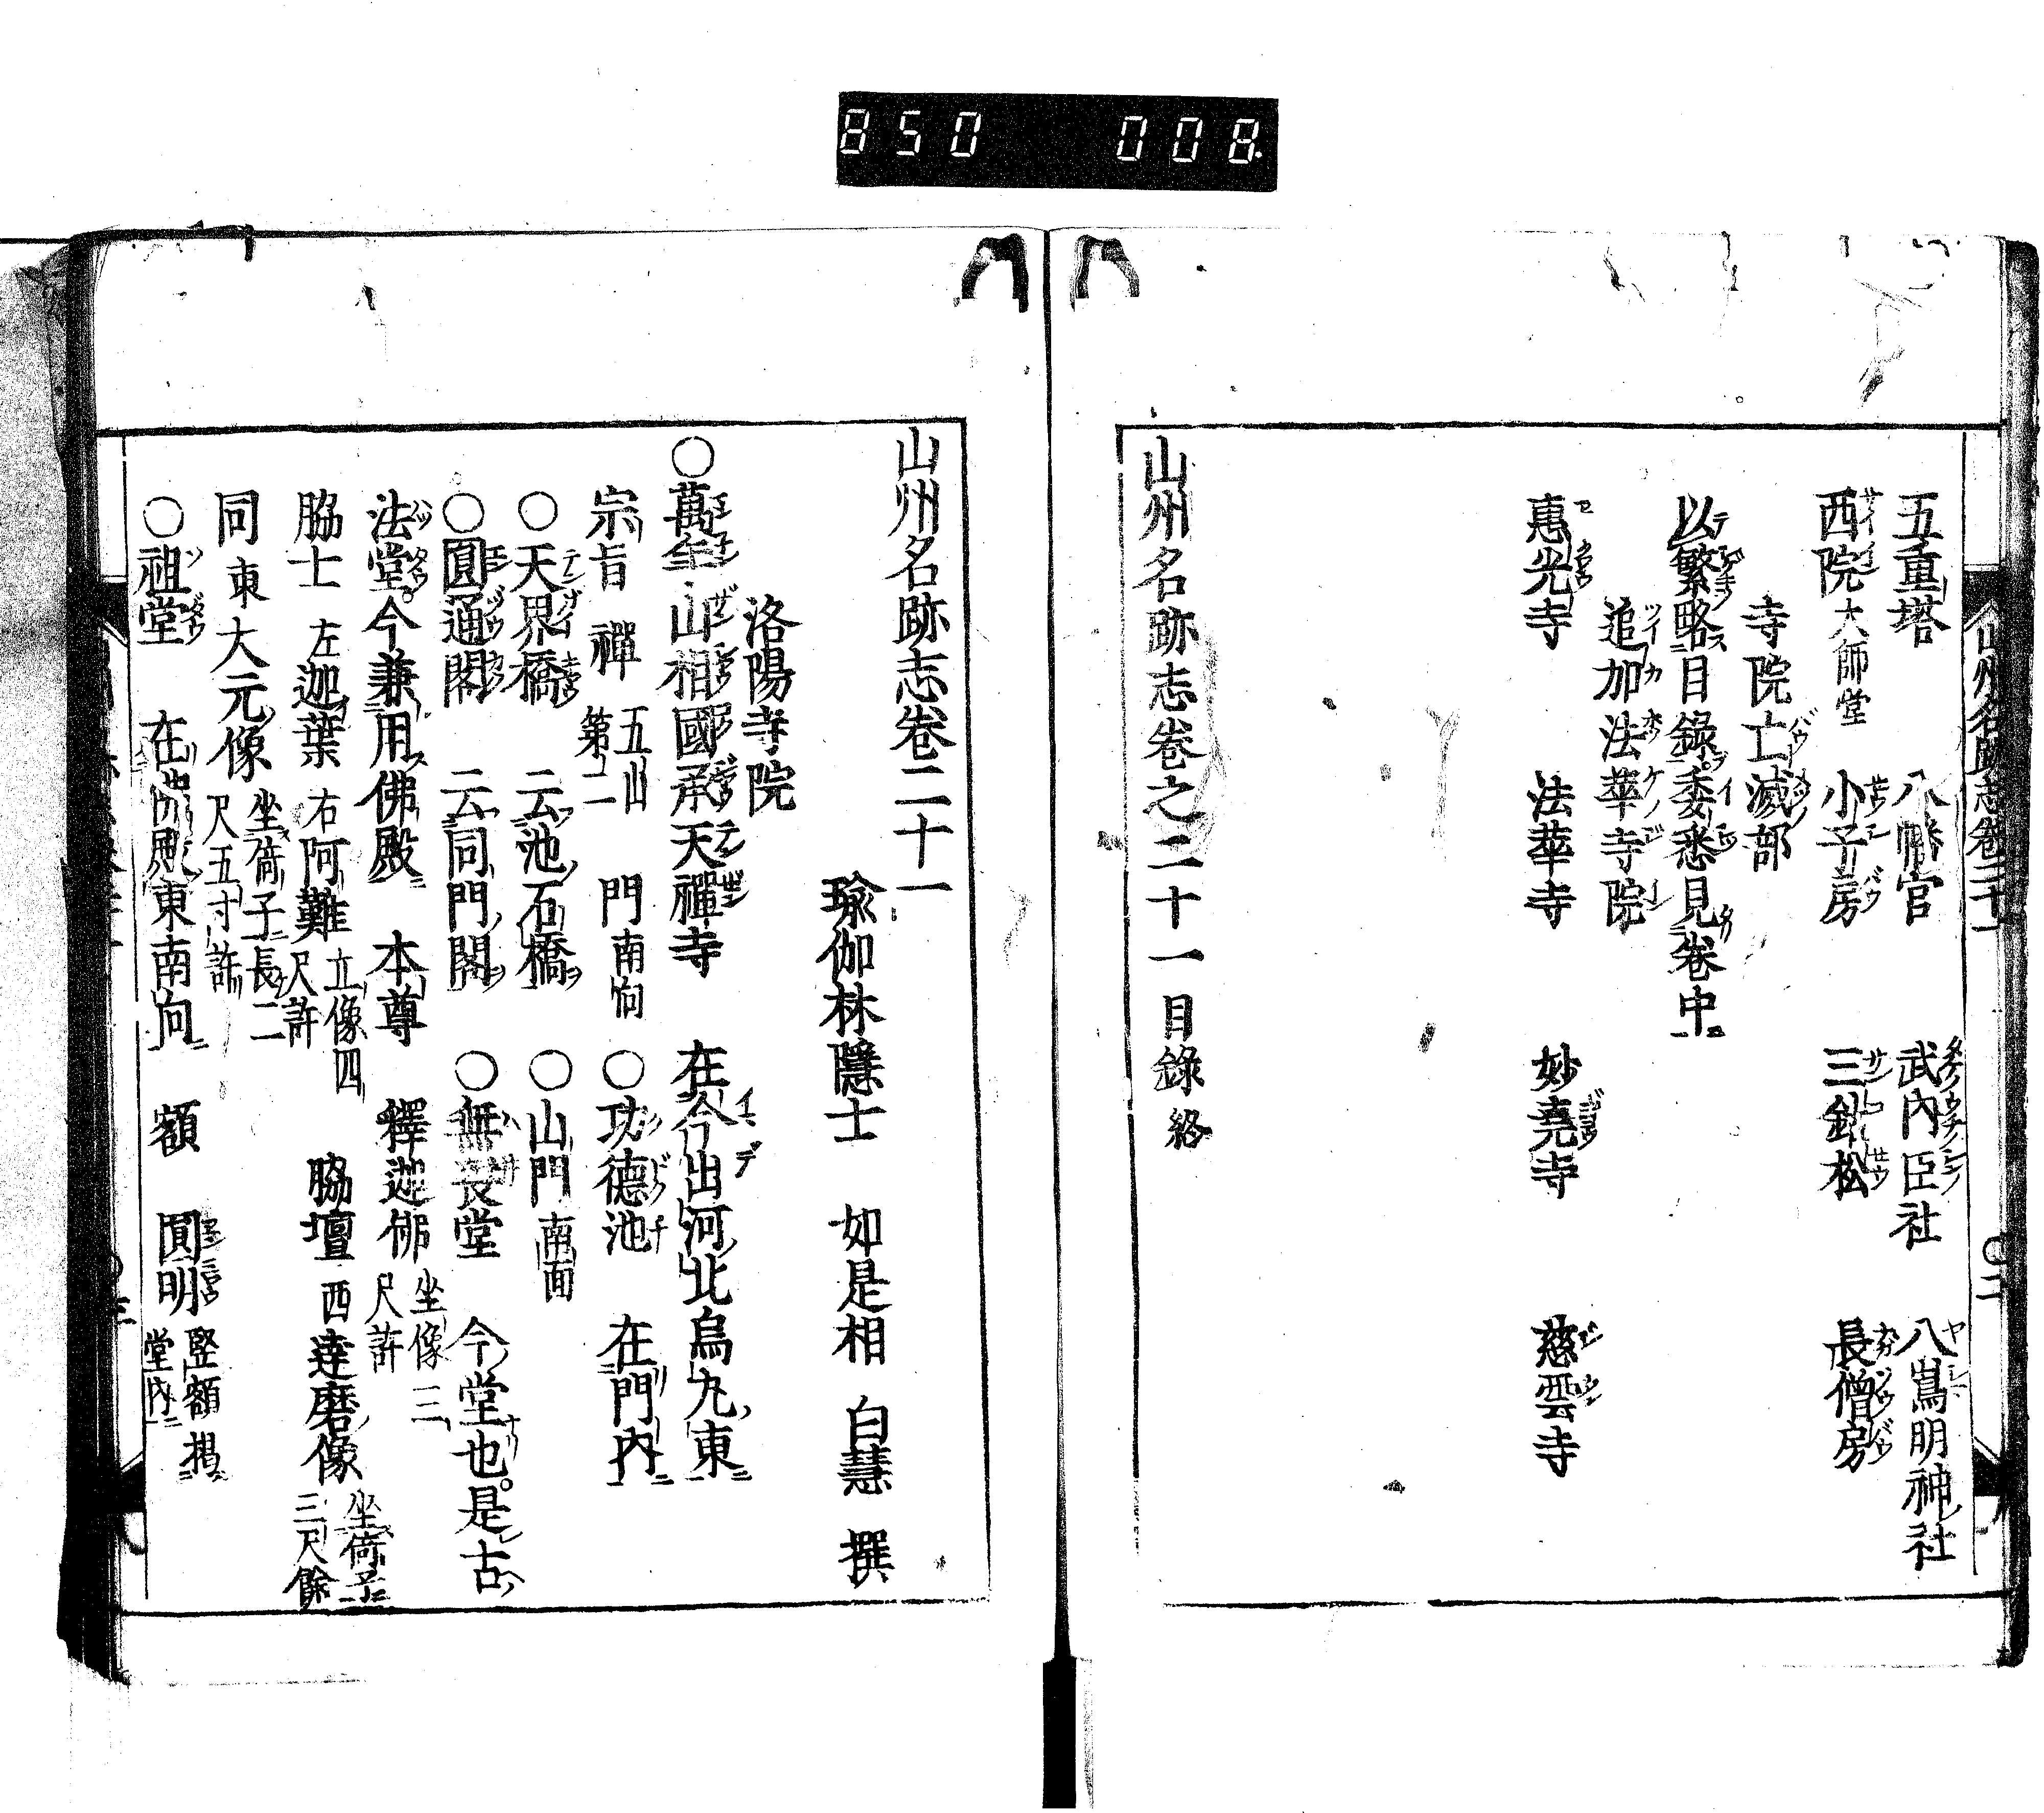 850 008
五重塔 八幡宮 武內臣社 八嶌明神社
西院大師堂 小子房 三鈷松 長僧房
寺院亡滅部
以繁略目錄委悉見卷中
追加法華寺院
惠光寺 法華寺 妙堯寺 慈雲寺
山州名跡志卷之二十一目錄終
山州名跡志卷二十一
瑜伽林隱士 如是相 白慧 撰
洛陽寺院
○萬年山相國承天禪寺 在今出河北烏丸東
宗旨 禪 五山第二 門南向 ○功德池 在門內
○天界橋 云池石橋 ○山門南面
○圓通閣 云同門閣 ○無畏堂 今堂也是古
法堂今兼用佛殿 本尊 釋迦佛 坐像三尺許
脇士 左迦葉 右阿難 立像四尺許 脇壇 西達磨像 坐倚子三尺餘
同東大元像 坐倚子長二尺五寸許
○祖堂 在佛殿東南向 額 圓明 竪額揭堂內